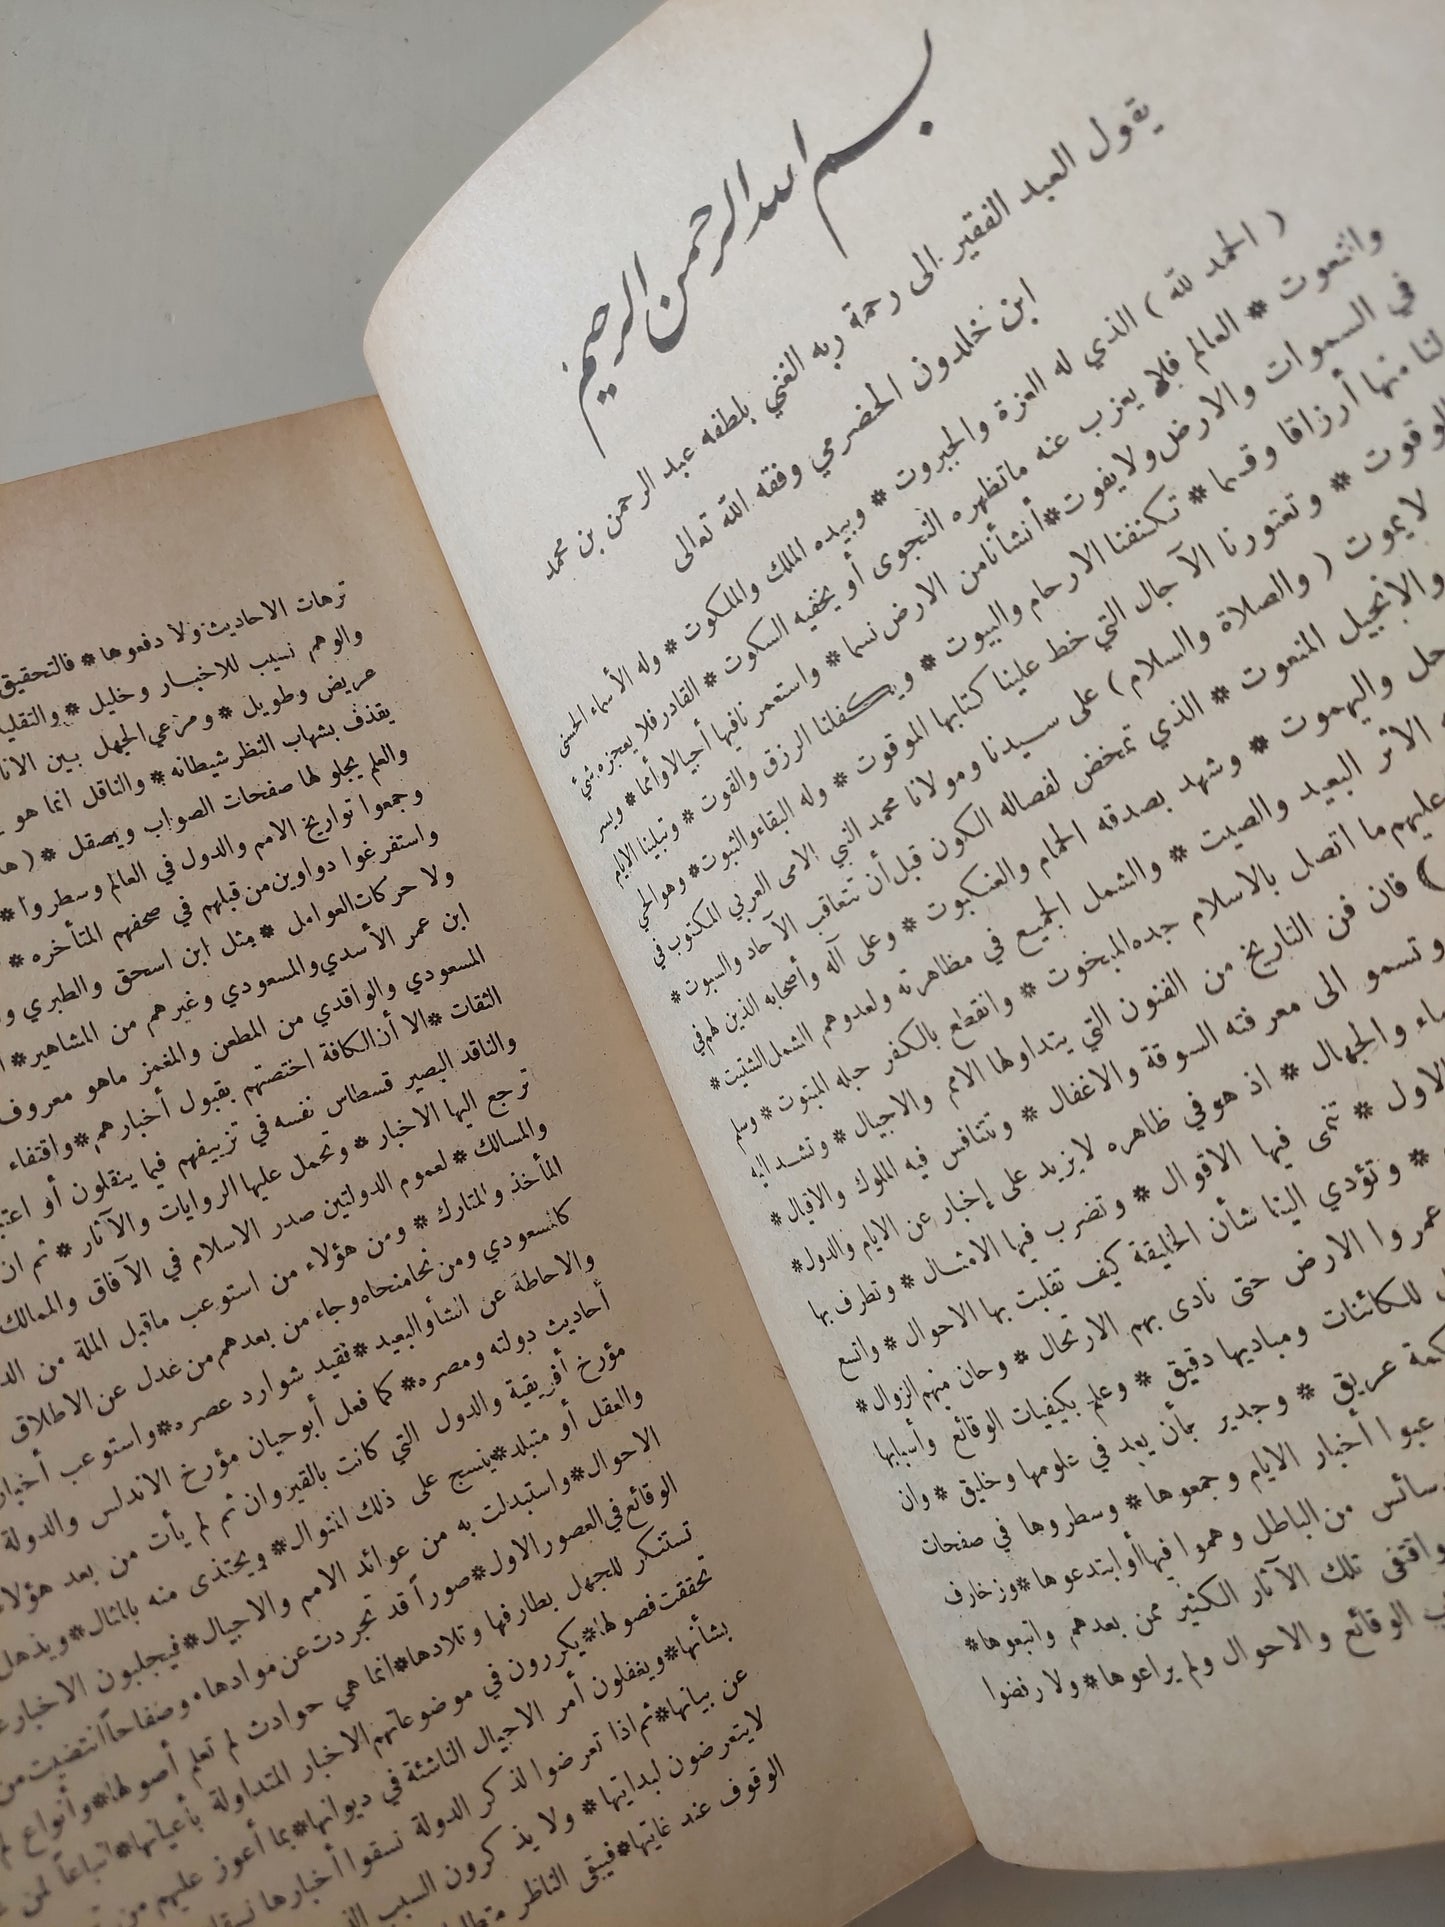 بسم الله الرحمن الرحيم
يقول العبد الفقير الى رحمة ربه الغني بلطفه عبد الرحمن بن محمد
ابن خلدون الحضرمي وفقه الله تعالى
( الحمد لله ) الذي له العزة والجبروت * وبيده الملك والملكوت * وله الأسماء الحسنى
والنعوت * العالم فلا يعزب عنه ماتظهره النجوى أو يخفيه السكوت * القادر فلا يعجزه شئ
في السموات والارض ولا يفوت * أنشأنا من الارض نسما * واستعمرنا فيها أجيالا وأمما * ويسر
لنا منها أرزاقا وقسما * تكنفنا الارحام والبيوت * ويكفلنا الرزق والقوت * وتبلينا الايام
والوقوت * وتعتورنا الآجال التي خط علينا كتابها الموقوت * وله البقاء والثبوت * وهو الحي
لا يموت ( والصلاة والسلام ) على سيدنا ومولانا محمد النبي الامى العربي المكتوب في
والانجيل المنعوت * الذي تمخض لفصاله الكون قبل أن تتعاقب الآحاد والسبوت *
واليهموت * وشهد بصدقه الحمام والعنكبوت * وعلى آله وأصحابه الذين لهم في
الاثر البعيد والصيت * والشمل الجميع في مظاهرته ولعدوهم الشمل الشتيت *
عليهم ما اتصل بالاسلام جده المبخوت * وانقطع بالكفر حبله المبتوت * وسلم
) فان فن التاريخ من الفنون التي يتداولها الامم والاجيال * وتشد اليه
وتسمو الى معرفته السوقة والاغفال * وتتنافس فيه الملوك والاقيال *
والجهال * اذ هو في ظاهره لا يزيد على إخبار عن الايام والدول *
الاول * تنمى فيها الاقوال * وتضرب فيها الامثال * وتطرف بها
* وتؤدي الينا شأن الخليقة كيف تقلبت بها الاحوال * واتسع
عمروا الارض حتى نادى بهم الارتحال * وحان منهم الزوال *
للكائنات ومباديها دقيق * وعلم بكيفيات الوقائع وأسبابها
عريق * وجدير بأن يعد في علومها وخليق * وان
أخبار الايام وجمعوها * وسطروها في صفحات
من الباطل وهموا فيها أو ابتدعوها * وزخارف
واقتفى تلك الآثار الكثير ممن بعدهم واتبعوها *
الوقائع والاحوال ولم يراعوها * ولا رفضوا
ترهات الاحاديث ولا دفعوها * فالتحقيق
والوهم نسيب للاخبار وخليل * والتقليد
عريض وطويل * ومرعي الجهل بين الانام
يقذف بشهاب النظر شيطانه * والناقل انما هو
والعلم يجلو لها صفحات الصواب ويصقل *
وجمعوا تواريخ الامم والدول في العالم وسطروا *
واستفرغوا دواوين من قبلهم في صحفهم المتأخره *
ولا حركات العوامل * مثل ابن اسحق والطبري
ابن عمر الأسدي والمسعودي وغيرهم من المشاهير *
المسعودي والواقدي من المطعن والمغمز ماهو معروف
الثقات * الا أن الكافة اختصتهم بقبول أخبارهم * واقتفاء
والناقد البصير قسطاس نفسه في تزييفهم فيما ينقلون أو
ترجع اليها الاخبار * وتحمل عليها الروايات والآثار * ثم ان
والمسالك * لعموم الدولتين صدر الاسلام في الآفاق والممالك
المأخذ والمتارك * ومن هؤلاء من استوعب ماقبل الملة من
كالمسعودي ومن نحا منحاه وجاء من بعدهم من عدل عن الاطلاق
والاحاطة عن انشأو البعيد * فقيد شوارد عصره * واستوعب
أحاديث دولته ومصره * كما فعل أبو حيان مؤرخ الاندلس والدولة
مؤرخ أفريقية والدول التي كانت بالقيروان ثم لم يأت من بعد هؤلاء
والعقل أو متبلد * ينسج على ذلك المنوال * ويحتذى منه بالمثال * ويذهل
الاحوال * واستبدلت به من عوائد الامم والاجيال * فيجلبون الاخبار
الوقائع في العصور الاول * صوراً قد تجردت عن موادها * وصفاحاً انتضيت من
تستنكر للجهل بطارفها وتلادها * انما هي حوادث لم تعلم أصولها * وأنواع لم
تحققت فصولها * يكررون في موضوعاتهم الاخبار المتداولة بأعيانها * اتباعاً لمن
بشأنها * ويغفلون أمر الاجيال الناشئة في ديوانها * بما أعوز عليهم من
عن بيانها * ثم اذا تعرضوا لذكر الدولة نسقوا أخبارها
لا يتعرضون لبدايتها * ولا يذكرون السبب
الوقوف عند غايتها * فيبقى الناظر